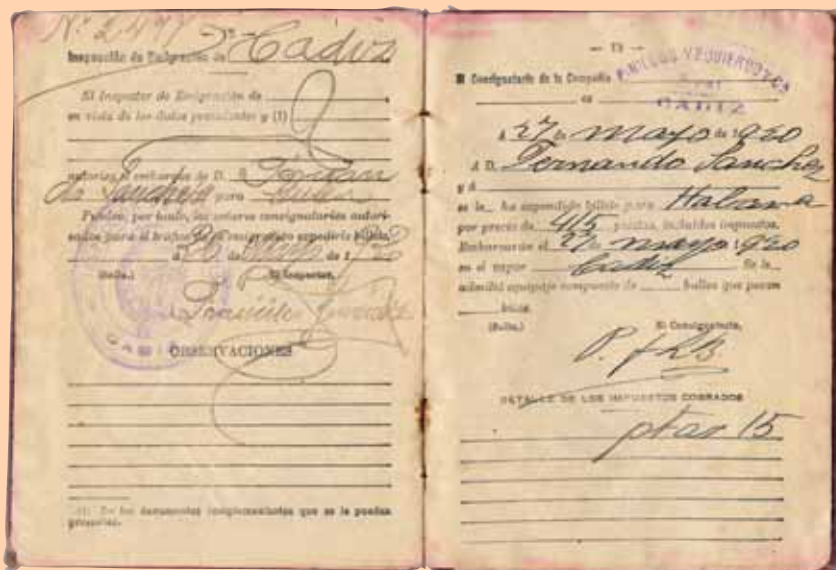 Nº 2.477
Inspección de Emigración de Cadiz
El Inspector de Emigración de
en vista de los datos precedentes y (1)
autoriza el embarque de D. Fernan
do Sanchez para Cuba
Pueden, por tanto, los señores consignatarios autori-
zados para el tráfico de la emigración expedirle billete.
á 26 de Mayo de 1920
(Sello.) El Inspector,
CADIZ
OBSERVACIONES
(1) De los documentos complementarios que se le puedan
presentar.
— 13 —
El Consignatario de la Compañía PINILLOS YZQUIERDO Y Cª
en CADIZ
á 27 de mayo de 1920
á D. Fernando Sanchez
y á
se le ha expendido billete para Habana
por precio de 415 pesetas, incluídos impuestos.
Embarcarán el 27 de mayo 1920
en el vapor Cadiz Se le
admitió equipaje compuesto de bultos que pesan
kilos
(Sello.) El Consignatario,
DETALLE DE LOS IMPUESTOS COBRADOS
ptas 15